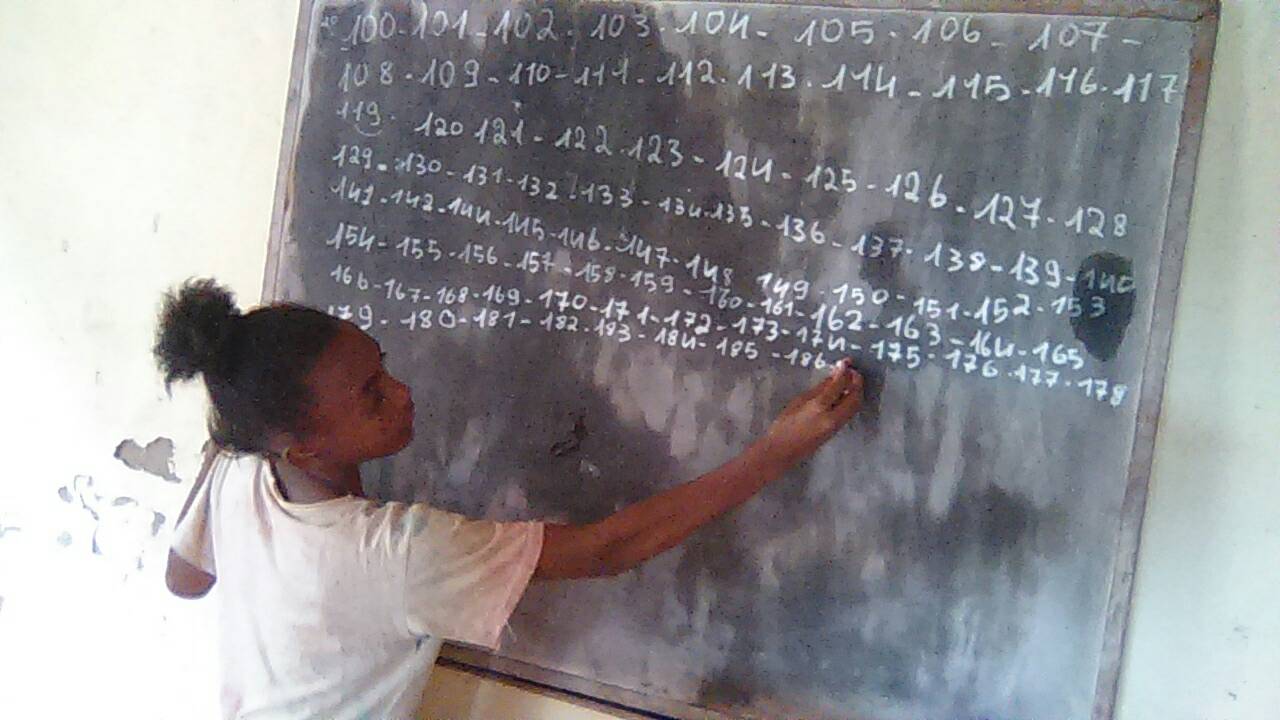 100-101-102-103-104- 105-106-107-
108-109-110-111-112-113-114-115-116-117
119- 120 121-122-123-124-125-126-127-128
129-130-131-132-133-134-135-136-137-138-139-140
141-142-144-145-146-147-148 149-150-151-152-153
154-155-156-157-158-159-160-161-162-163-164-165
166-167-168-169-170-171-172-173-174-175-176-177-178
179-180-181-182-183-184-185-186-